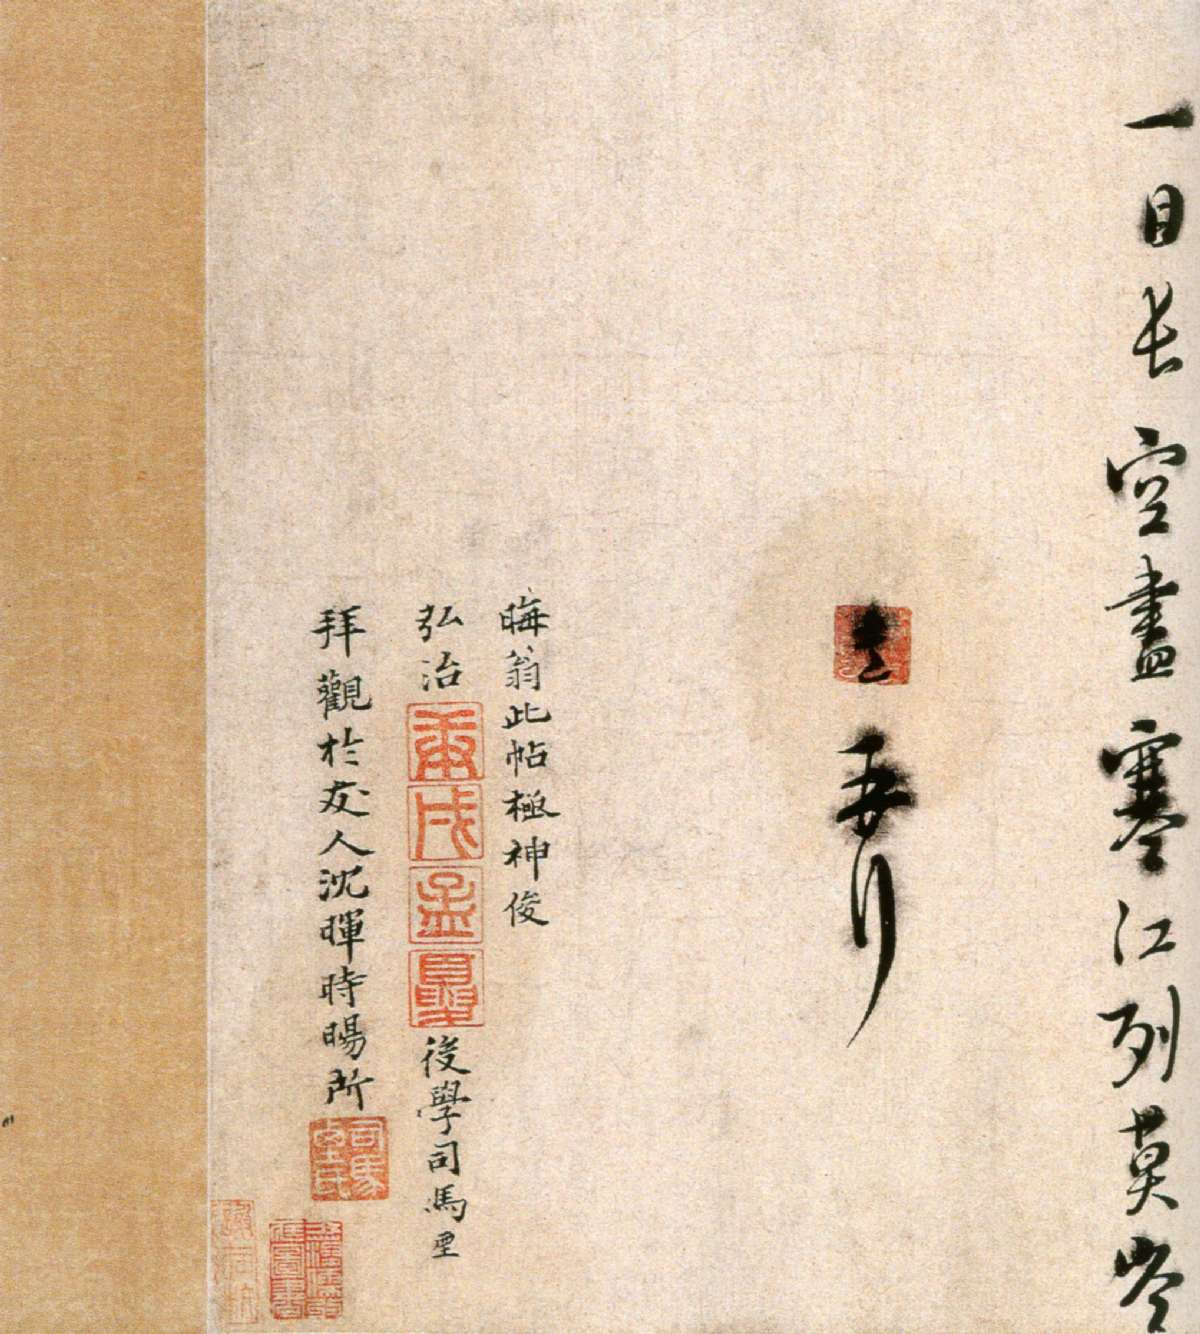 一日長空盡寒江列莫岑
晦翁此帖極神俊
弘治庚戌孟夏後學司馬垔
拜觀於友人沈暉時暘所
司馬